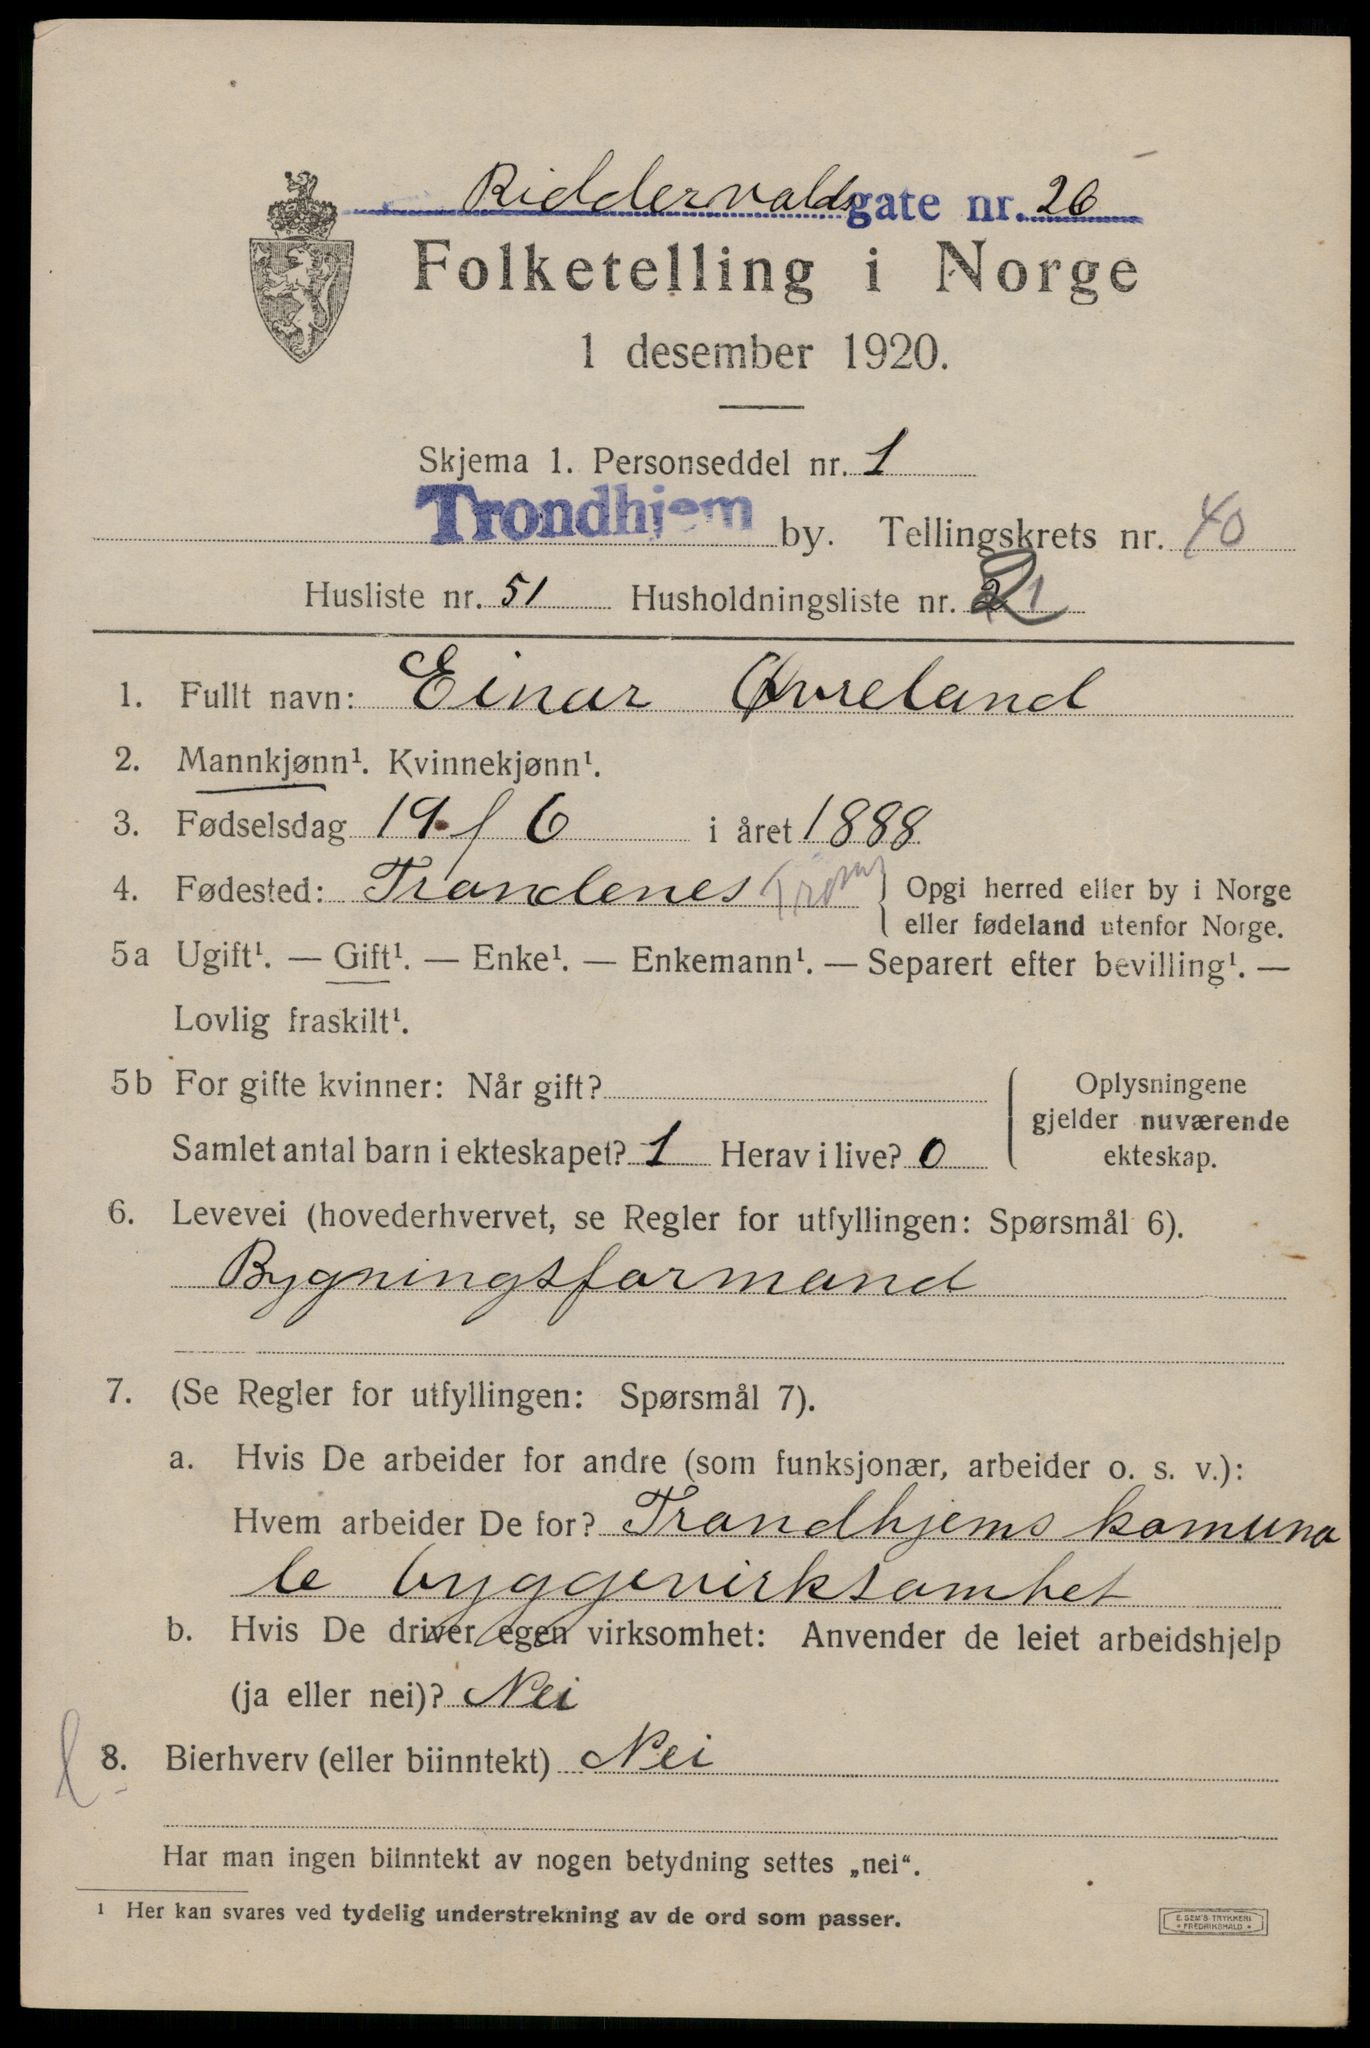 Riddervoldsgate nr. 26
Folketelling i Norge
1 desember 1920.
Skjema 1. Personseddel nr. 1
Trondhjem by. Tellingskrets nr. 40
Husliste nr. 51 Husholdningsliste nr. 21
1. Fullt navn: Einar Øvreland
2. Mannkjønn¹. Kvinnekjønn¹.
3. Fødselsdag 19. / 6 i året 1888
4. Fødested: Trondenes Troms { Opgi herred eller by i Norge
eller fødeland utenfor Norge.
5a Ugift¹. — Gift¹. — Enke¹. — Enkemann¹. — Separert efter bevilling¹. —
Lovlig fraskilt¹.
5b For gifte kvinner: Når gift?
Oplysningene
gjelder nuværende
ekteskap.
Samlet antal barn i ekteskapet? 1 Herav i live? 0
6. Levevei (hovederhvervet, se Regler for utfyllingen: Spørsmål 6).
Bygningsformand
7. (Se Regler for utfyllingen: Spørsmål 7).
a. Hvis De arbeider for andre (som funksjonær, arbeider o. s. v.):
Hvem arbeider De for? Trondhjems komuna
le byggevirksomhet
b. Hvis De driver egen virksomhet: Anvender de leiet arbeidshjelp
(ja eller nei)? Nei
8. Bierhverv (eller biinntekt) Nei
Har man ingen biinntekt av nogen betydning settes „nei“.
¹ Her kan svares ved tydelig understrekning av de ord som passer.
E. SEM'S TRYKKERI
FREDRIKSHALD